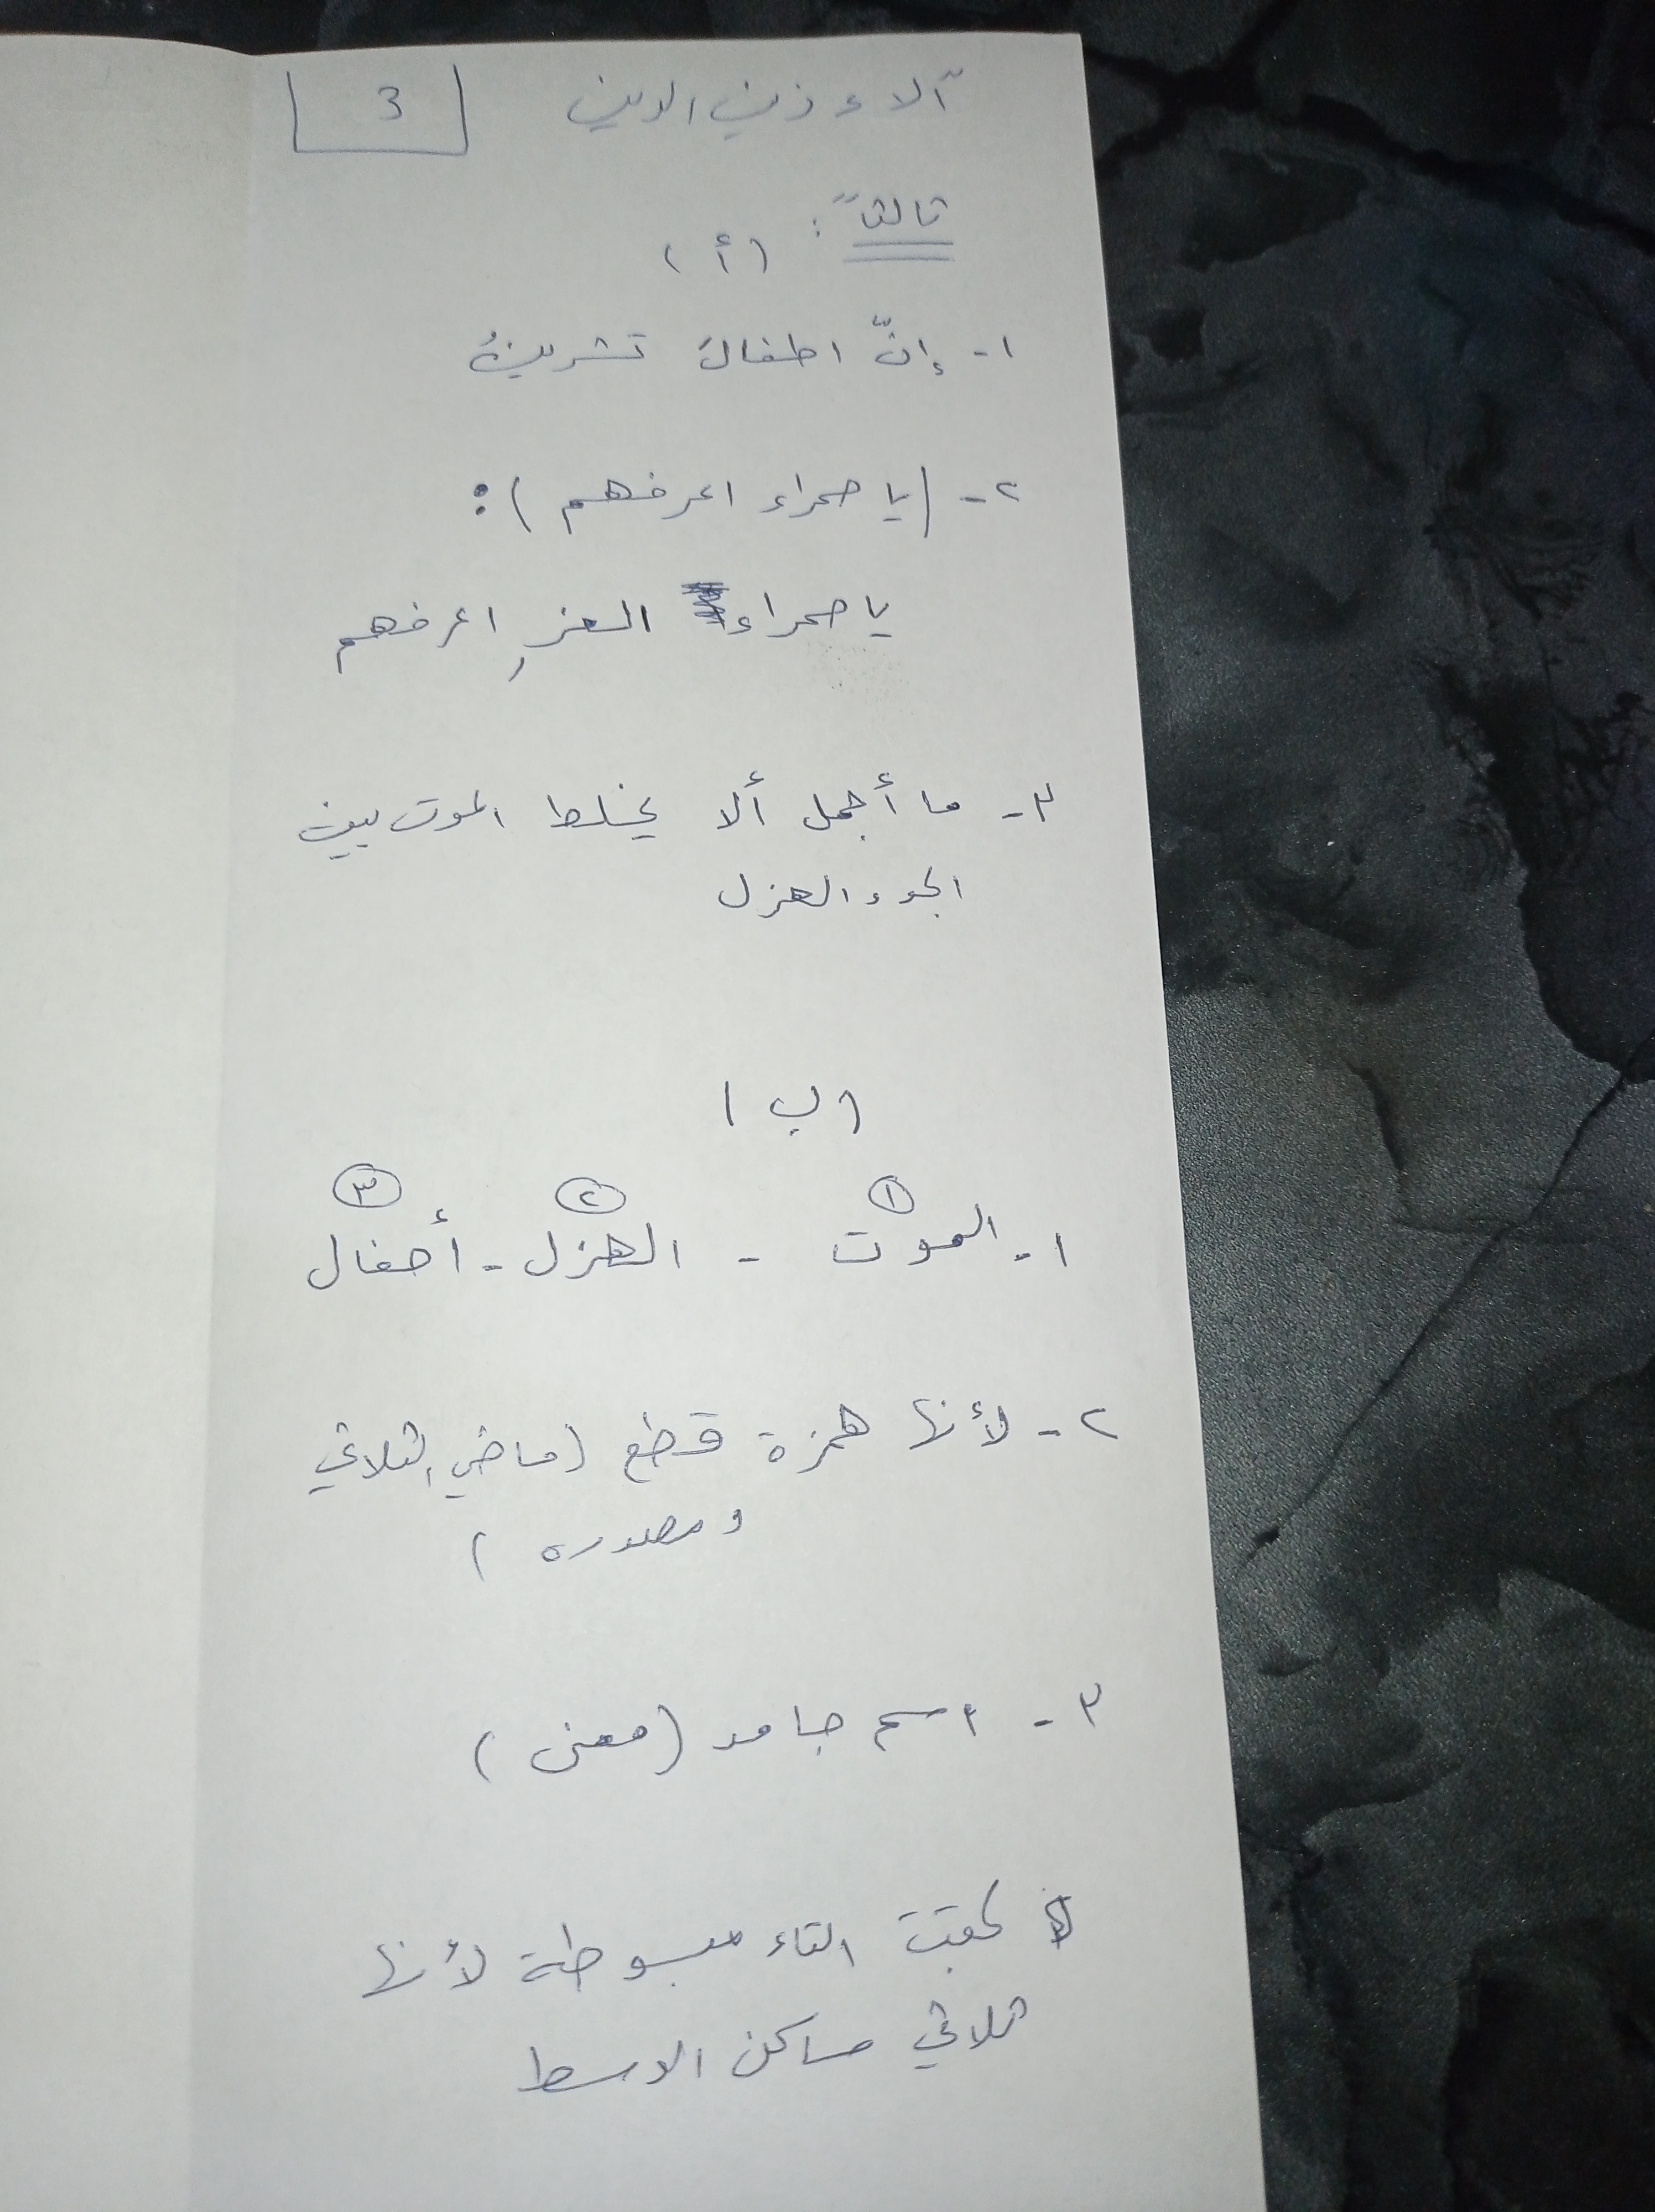 آلاء زين الدين 3
ثالثاً :
(أ)
١- إنّ اطفالَ تشرينَ
٢- (يا صحراء اعرفهم) :
يا صحراء العزِ اعرفهم
٣- ما أجمل ألا يخلط الموت بين
الجد و الهزل
(ب)
١ ٢ ٣
١- الموت - الهزل - أطفال
٢- لأنها همزة قطع (ماضي الثلاثي
ومصدره)
٣- اسم جامد (معنى)
كتبت التاء مبسوطة لأنها
ثلاثي ساكن الوسط